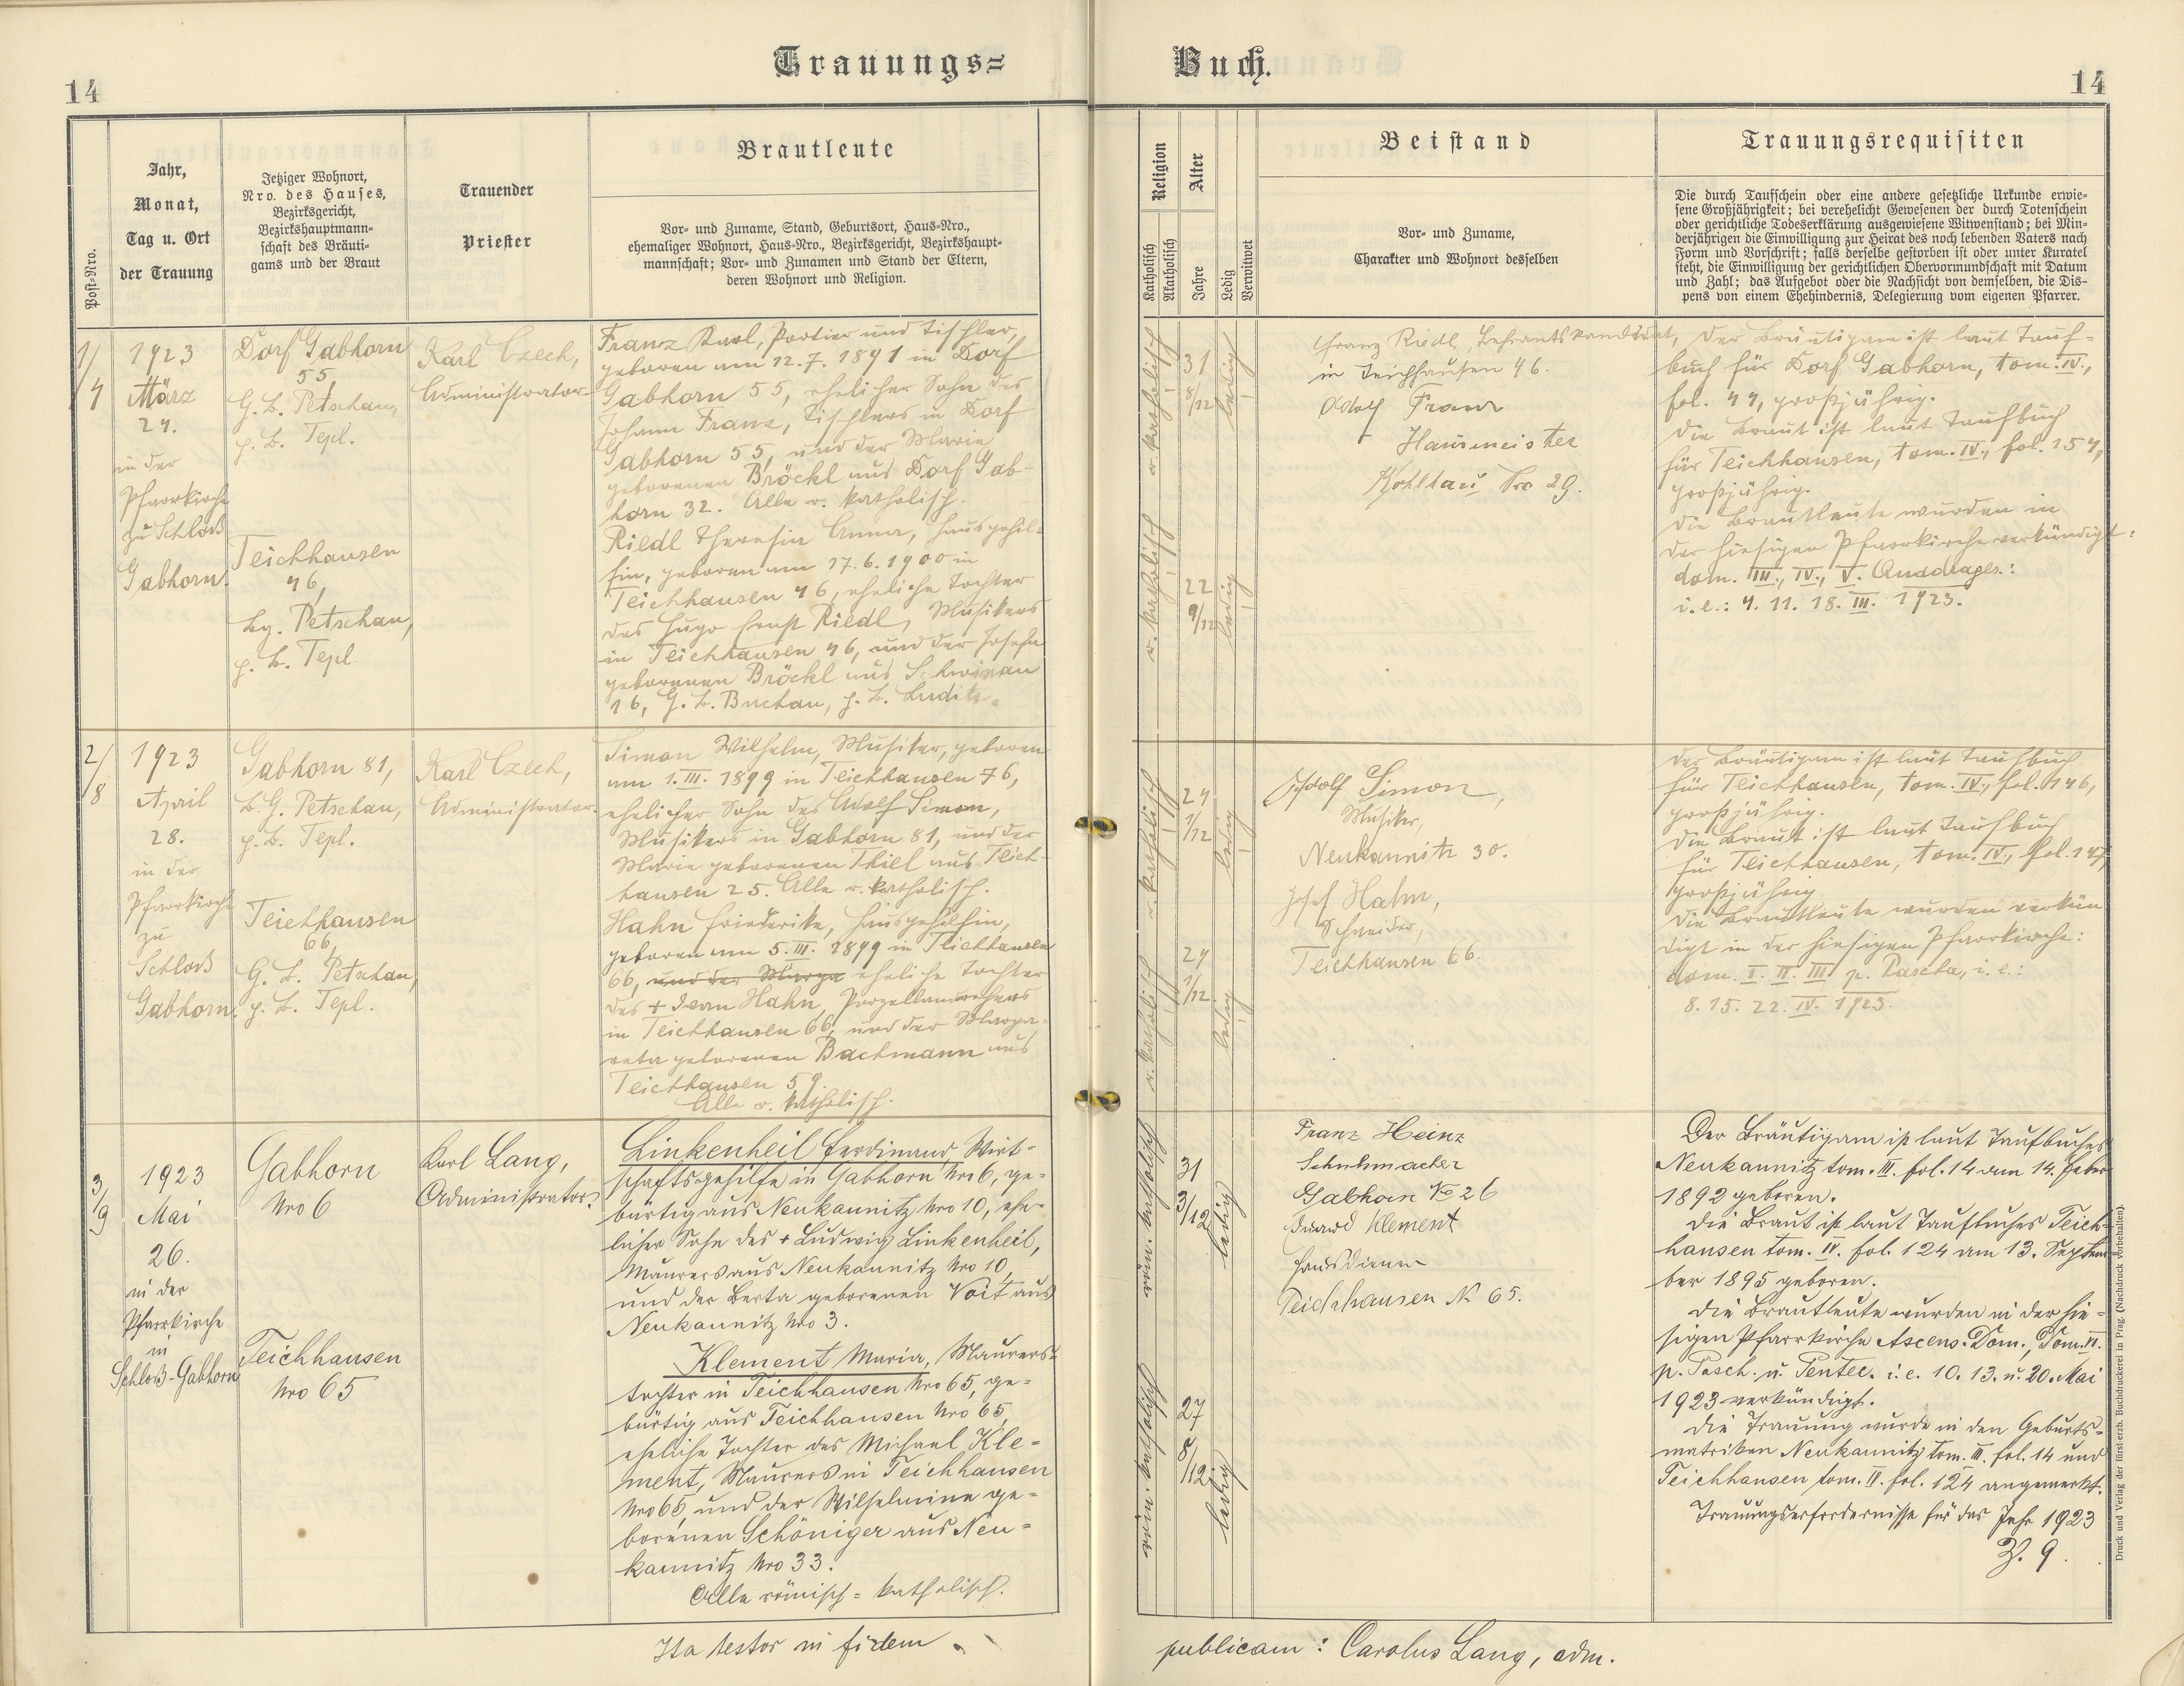 Trauungs=
Buch.
14
14
Post-Nro.
Jahr,
Monat,
Tag u. Ort
der Trauung
Jetziger Wohnort,
Nro. des Hauses,
Bezirksgericht,
Bezirkshauptmann-
schaft des Bräuti-
gams und der Braut
Trauender
Priester
Brautleute
Vor- und Zuname, Stand, Geburtsort, Haus-Nro.,
ehemaliger Wohnort, Haus-Nro., Bezirksgericht, Bezirkshaupt-
mannschaft; Vor- und Zunamen und Stand der Eltern,
deren Wohnort und Religion.
Religion
Katholisch
Akatholisch
Alter
Jahre
Ledig
Verwitwet
Beistand
Vor- und Zuname,
Charakter und Wohnort desselben
Trauungsrequisiten
Die durch Taufschein oder eine andere gesetzliche Urkunde erwie-
sene Großjährigkeit; bei verehelicht Gewesenen der durch Totenschein
oder gerichtliche Todeserklärung ausgewiesene Witwenstand; bei Min-
derjährigen die Einwilligung zur Heirat des noch lebenden Vaters nach
Form und Vorschrift; falls derselbe gestorben ist oder unter Kuratel
steht, die Einwilligung der gerichtlichen Obervormundschaft mit Datum
und Zahl; das Aufgebot oder die Nachsicht von demselben, die Dis-
pens von einem Ehehindernis, Delegierung vom eigenen Pfarrer.
1/4
1923
März
24.
in der
Pfarrkirche
zu Schloß
Gabhorn.
Dorf Gabhorn
55,
G. B. Petschau,
p. B. Tepl.
Teichhausen
46,
Bg. Petschau,
p. B. Tepl
Karl Czech,
Administrator
Franz Karl, Portier und Tischler,
geboren am 12.7.1891 in Dorf
Gabhorn 55, ehelicher Sohn des
Johann Franz, Tischlers in Dorf
Gabhorn 55, und der Marie
geborenen Bröckl aus Dorf Gab-
horn 32. Alle r. katholisch.
Riedl Theresia Anna, Hausgehil-
fin, geboren am 17.6.1900 in
Teichhausen 46, eheliche Tochter
des Hugo Ernst Riedl, Musikers
in Teichhausen 46, und der Josefa
geborenen Bröckl aus
16, G. B. Buchau, p. B. Luditz.
r. katholisch
31
8/12
ledig
r. katholisch
22
9/12
ledig
Franz Riedl, Lehramtskandidat,
in Teichhausen 46.
Adolf Franz
Hausmeister
Kohllau Nro 29.
Der Bräutigam ist laut Tauf-
buch für Dorf Gabhorn, tom. IV.,
fol. 44, großjährig.
Die Braut ist laut Taufbuch
für Teichhausen, tom. IV., fol. 154,
großjährig.
Die Brautleute wurden in
der hiesigen Pfarrkirche verkündigt:
dom. III., IV., V. Quadrages.:
i. e.: 4. 11. 18. III. 1923.
2/8
1923
April
28.
in der
Pfarrkirche
zu
Schloß
Gabhorn.
Gabhorn 81,
B. G. Petschau,
p. B. Tepl.
Teichhausen
66,
G. B. Petschau,
p. B. Tepl.
Karl Czech,
Administrator
Simon Wilhelm, Musiker, geboren
am 1. III. 1899 in Teichhausen 76,
ehelicher Sohn des Adolf Simon,
Musikers in Gabhorn 81, und der
Marie geborenen Thiel aus Teich-
hausen 25. Alle r. katholisch.
Hahn Friederike, Hausgehilfin,
geboren am 5. III. 1899 in Teichhausen
66, und der Marga eheliche Tochter
des + Hahn, Porzellandrehers
in Teichhausen 66, und der Marga-
reta geborenen Bachmann aus
Teichhausen 59.
Alle r. katholisch.
r. katholisch
24
1/12
ledig
r. katholisch
24
1/12
ledig
Adolf Simon,
Musiker,
Neukaunitz 30.
Josef Hahn,
Schneider,
Teichhausen 66.
Der Bräutigam ist laut Taufbuch
für Teichhausen, tom. IV., fol. 146,
großjährig.
Die Braut ist laut Taufbuch
für Teichhausen, tom. IV., fol. 147,
großjährig.
Die Brautleute wurden verkün
digt in der hiesigen Pfarrkirche:
dom. I. II. III. p. Pascha, i. e.:
8. 15. 22. IV. 1923.
3/9
1923
Mai
26.
in der
Pfarrkirche
in
Schloß-Gabhorn
Gabhorn
Nro 6
Teichhausen
Nro 65
Karl Lang,
Administrator.
Linkenheil Ferdinand, Wirt-
schaftsgehilfe in Gabhorn Nro 6, ge-
bürtig aus Neukaunitz Nro 10, ehe-
licher Sohn des + Ludwig Linkenheil,
Maurers aus Neukaunitz Nro 10,
und der Berta geborenen Voit aus
Neukaunitz Nro 3.
Klement Maria, Maurers-
tochter in Teichhausen Nro 65, ge-
bürtig aus Teichhausen Nro 65,
eheliche Tochter des Michael Kle-
ment, Maurers in Teichhausen
Nro 65, und der Wilhelmine ge-
borenen Schöniger aus Neu-
kaunitz Nro 33.
Alle römisch-katholisch.
röm. katholisch
31
3/12
ledig
röm. katholisch
27
8/12
ledig
Franz Heinz
Schuhmacher
Gabhorn No 26
Eduard Klement
Hausdiener
Teichhausen N. 65.
Der Bräutigam ist laut Taufbuches
Neukaunitz tom. III. fol. 14 am 14. Feber
1892 geboren.
Die Braut ist laut Taufbuches Teich-
hausen tom. IV. fol. 124 am 13. Septem-
ber 1895 geboren.
Die Brautleute wurden in der hie-
sigen Pfarrkirche Ascens. Dom., Dom. VI.
p. Pasch. u. Pentec. i. e. 10. 13. u. 20. Mai
1923 verkündigt.
Die Trauung wurde in den Geburts-
matriken Neukaunitz tom. III. fol. 14 und
Teichhausen tom. IV. fol. 124 angemerkt.
Trauungserfordernisse für das Jahr 1923
Z. 9.
Ita testor in fidem
publicam: Carolus Lang, adm.
Druck und Verlag der fürst-erzb. Buchdruckerei in Prag. (Nachdruck vorbehalten).